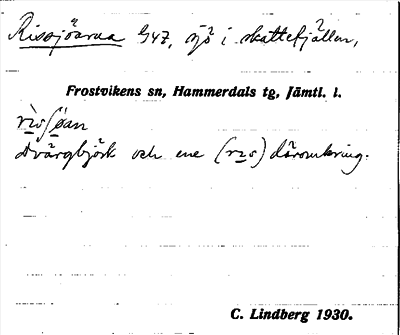 Rissjöarna G47, sjö i skattefjällen,
Frostvikens sn, Hammerdals tg, Jämtl. l.
dvärgbjörk och ene (ris) däromkring.
C. Lindberg 1930.